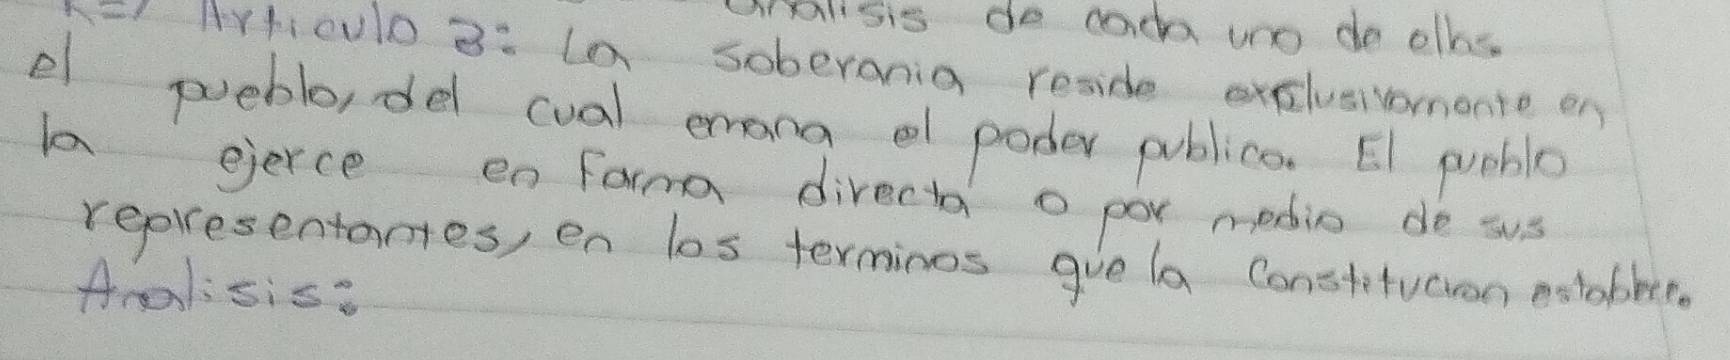 analisis de cada uno de ellos.
R=/ Articulo 3: La soberania reside exclusivamente en
el pueblo, del cual emana el poder publico. El pueblo
la ejerce en Forma directa o por medio de sus
representantes, en los terminos que la Constitucion establece.
Analisis: